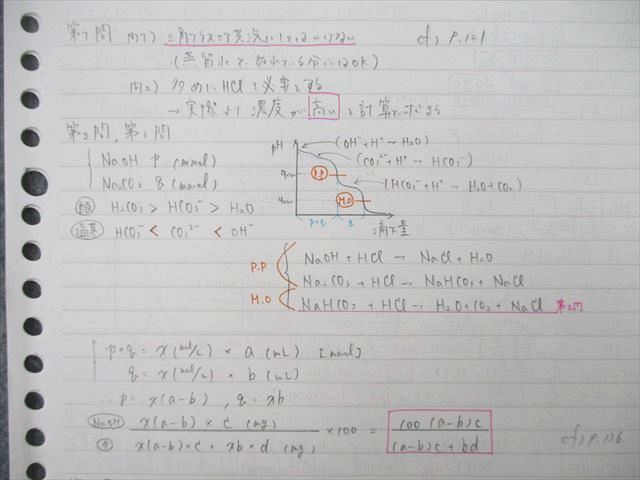 第1問 問1) 三角フラスコで共洗いしてはいけない cf) P.121
(蒸留水で ぬれている分にはOK)
問2) 多めにHClで必要とする
→ 実際より 濃度が 高い と計算で求まる
第2問, 第3問
NaOH p (mmol)
Na₂CO₃ q (mmol)
酸 H₂CO₃ > HCO₃⁻ > H₂O
塩基 HCO₃⁻ < CO₃²⁻ < OH⁻
pH
(OH⁻+H⁺→H₂O)
(CO₃²⁻+H⁺→ HCO₃⁻)
(HCO₃⁻+H⁺→ H₂O+CO₂)
P.P
M.O
p+q q 滴下量
P.P NaOH + HCl → NaCl + H₂O
Na₂CO₃ + HCl → NaHCO₃ + NaCl
M.O NaHCO₃ + HCl → H₂O+CO₂ + NaCl
p+q = x (mol/L) × a (mL) [mmol]
q = x (mol/L) × b (mL)
∴ p = x(a-b) , q = xb
NaOH x(a-b) × c (mg) / x(a-b)×c + xb×d (mg) ×100 = 100(a-b)c / (a-b)c + bd
cf) P.136